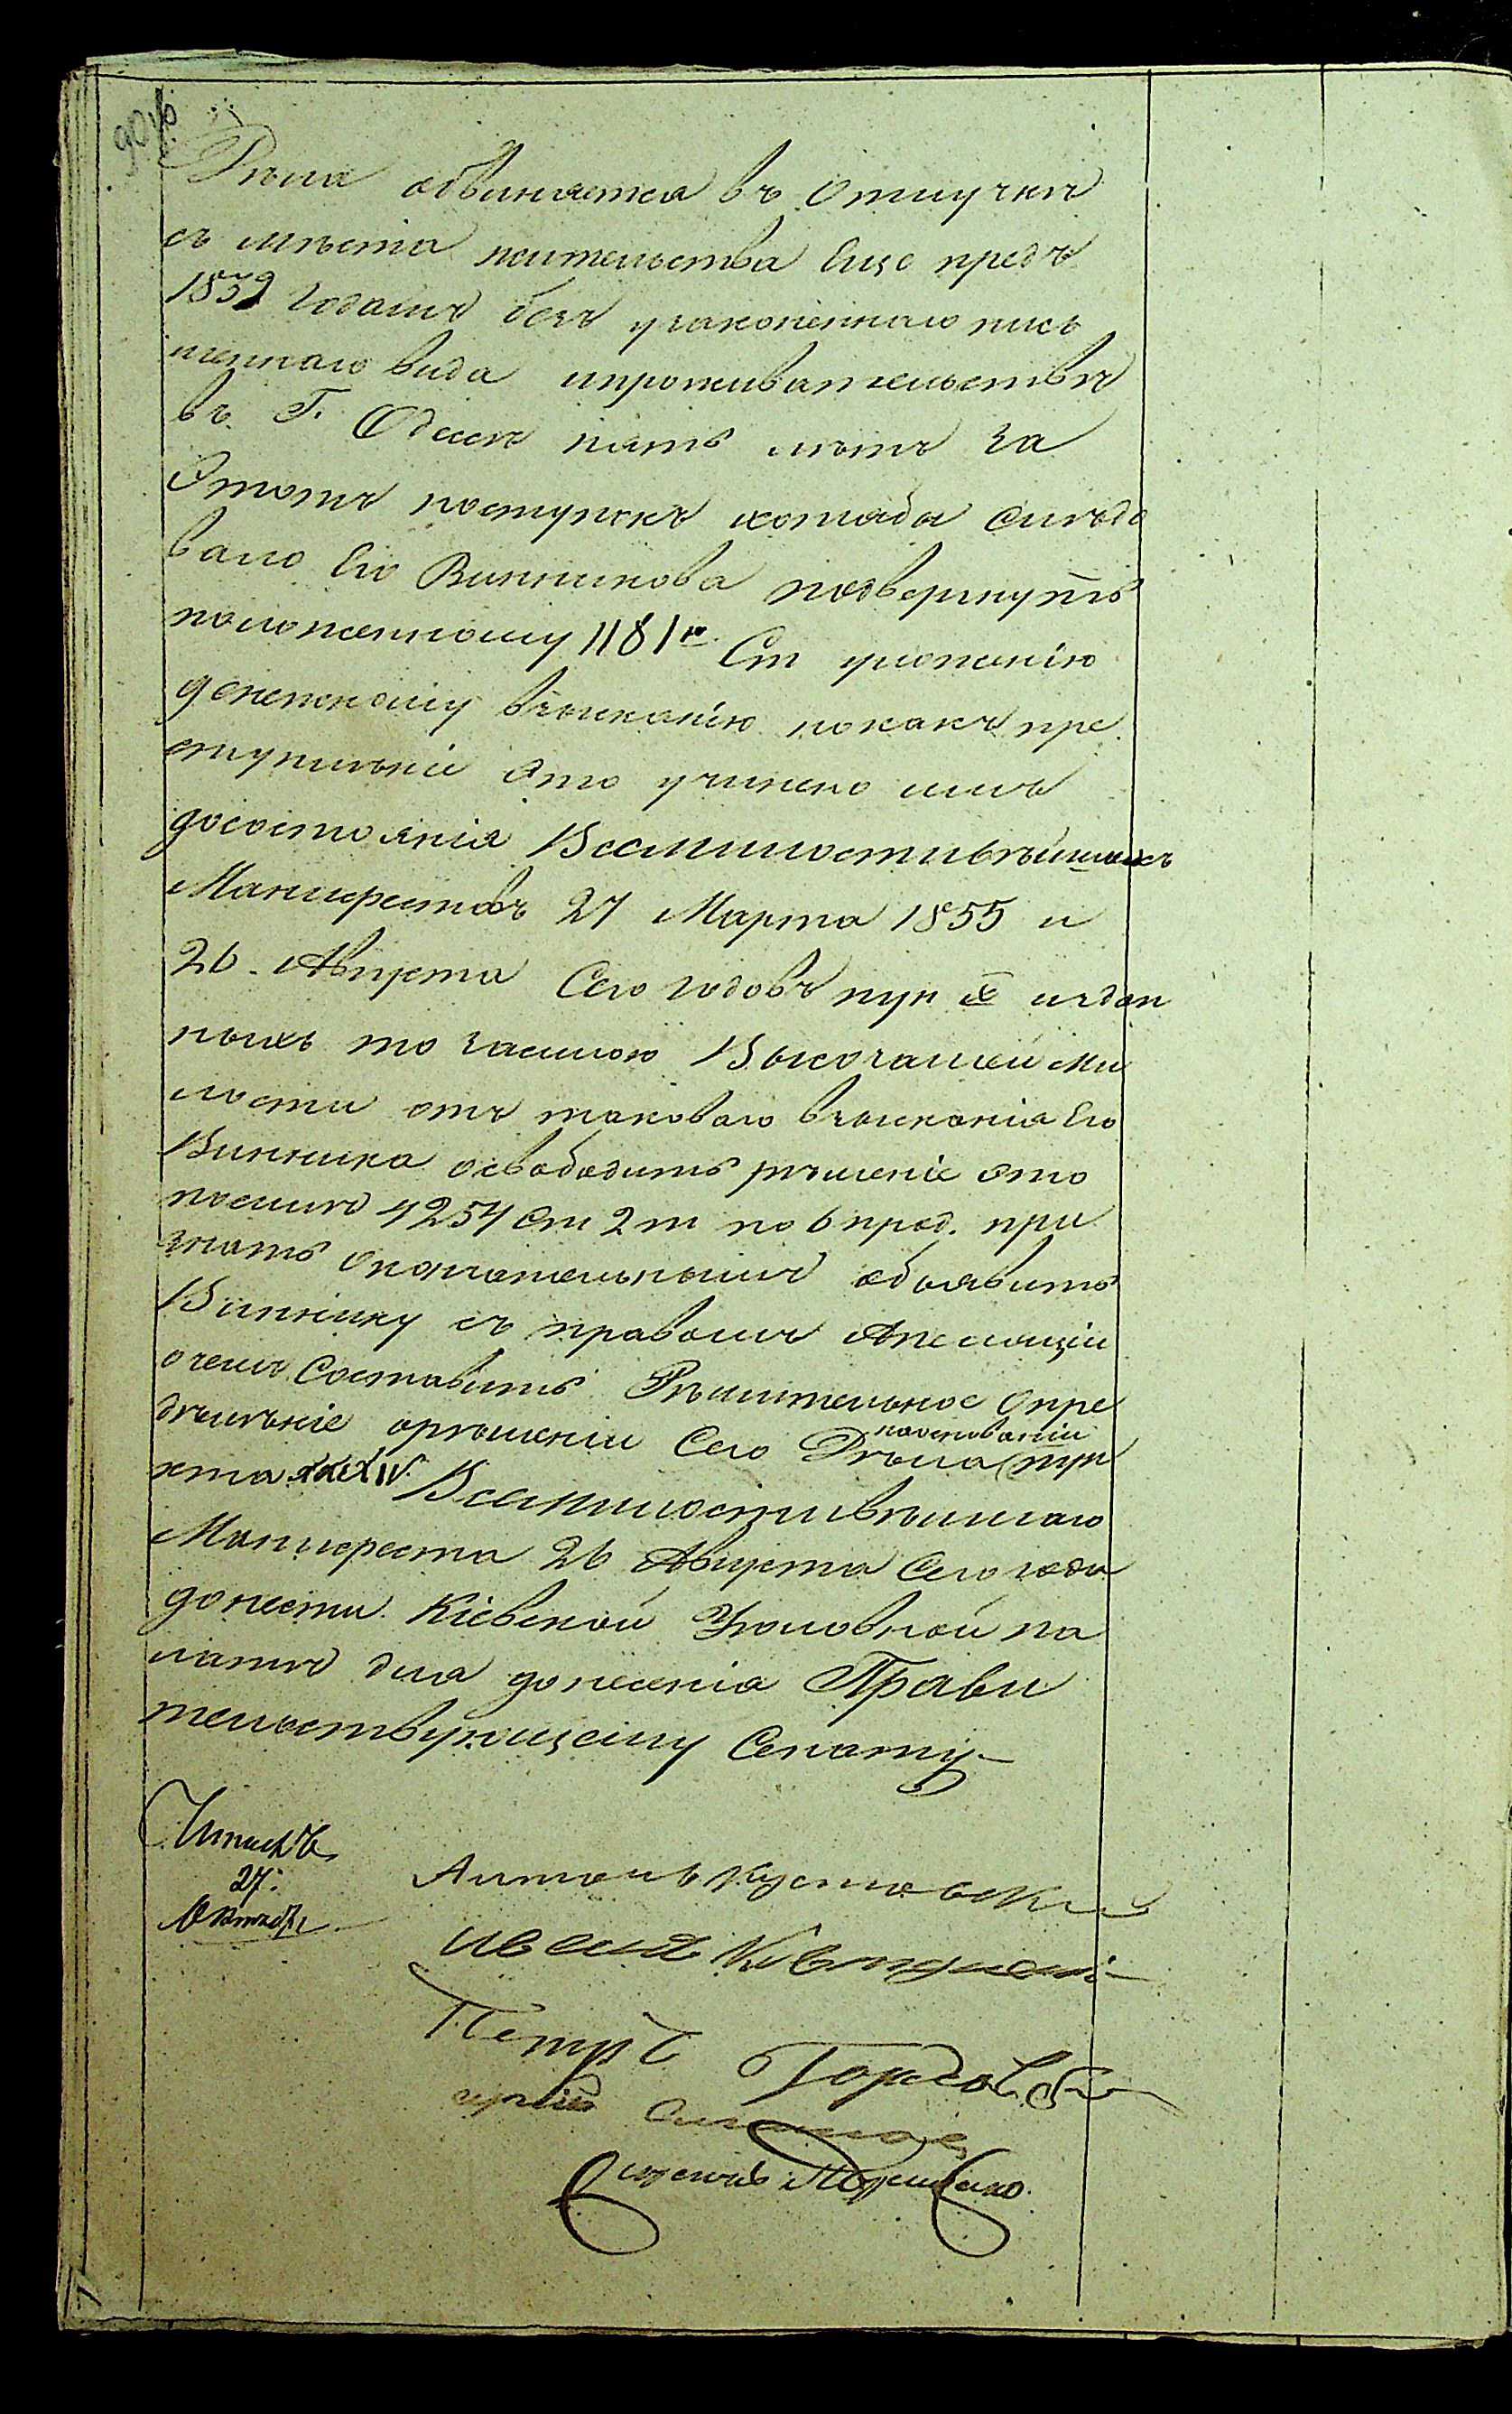 90 об
Дѣла обвиняется въ отлучкѣ
съ мѣста жительства Еще предъ
1852 годомъ безъ узаконеннаго пись
меннаго вида ипроживательствѣ
въ Г. Одессѣ пять лѣтъ за
Этотъ поступокъ хотябы слѣдо
вало Его Винникова подвергнуть
положенному 1181й Ст уложенію
денежному взысканію нокакъ пре
ступленіе Это учинено имъ
досостоянія Всемилостивѣйшихъ
Манифестовъ 27 Марта 1855 и
26. Августа Сего годовъ пун IX издан
ныхъ то засилою Высочайшей ми
лости отъ таковаго взысканія Его
Винника освободить рѣшеніе это
посилѣ 4254 Ст 2 т по 6 прод. при
знать окончательнымъ объявить
Виннику съ правомъ Апелляціи
очемъ Составить Рѣшительное Опре
дѣлѣніе орѣшеніи Сего Дѣла наоснованіи пун
кта XXXIV. Всемилостивѣйшаго
Манифеста 26 Августа Сего года
донести Кіевской Уголовной па
латѣ для донесенія Прави
тельствующему Сенату
27.
Октября
Антонъ Кустовскій
Иванъ
Петръ